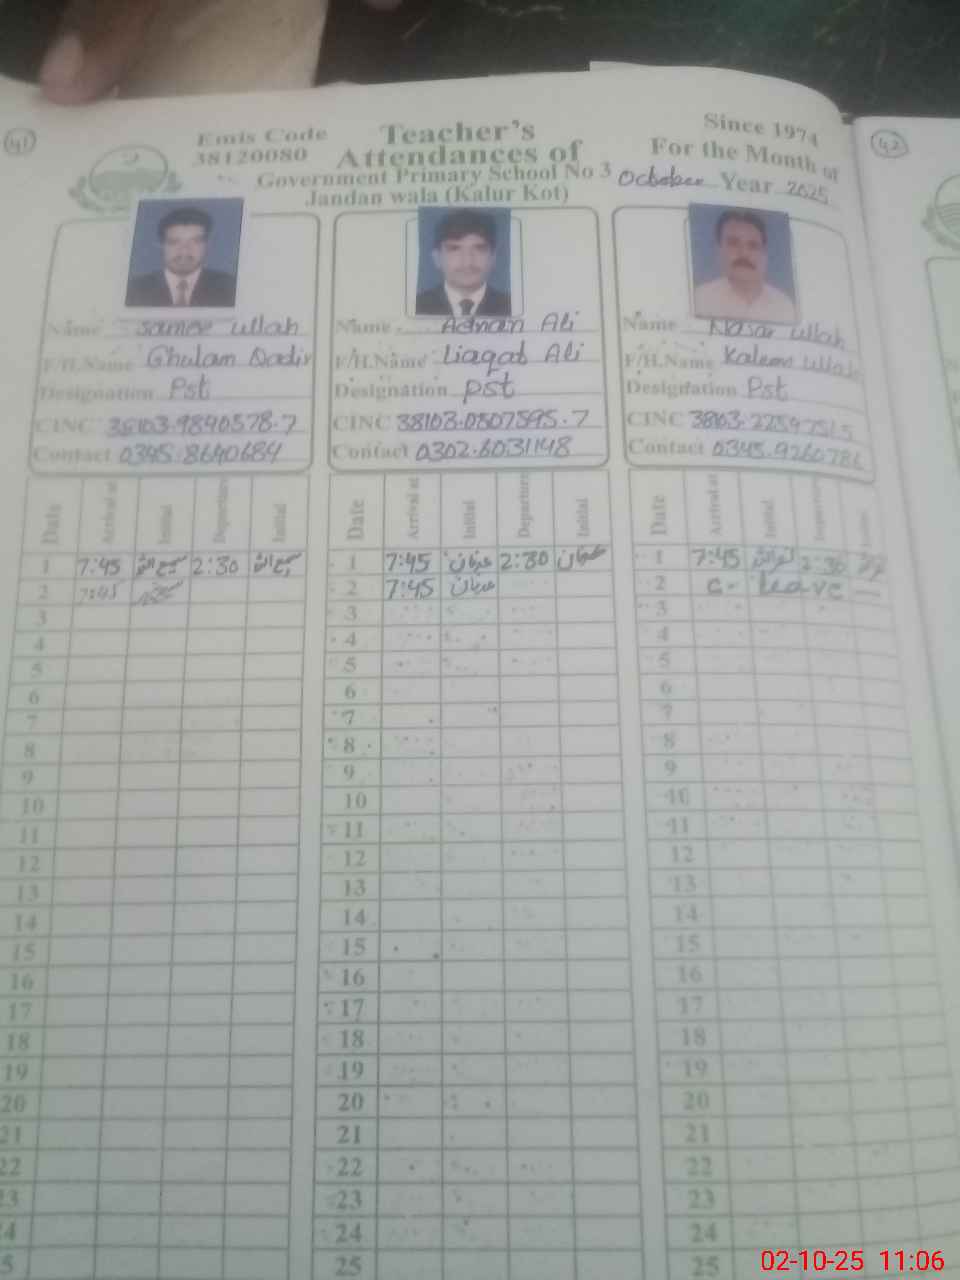 41
42
Emis Code
38120080
Teacher's
Attendances of
Government Primary School No 3
Jandan wala (Kalur Kot)
Since 1974
For the Month of
October Year 2025
Name Samee ullah
F/H.Name Ghulam Qadir
Designation Pst
CINC 38103-9840578-7
Contact 0345-8640684
Name Adnan Ali
F/H.Name Liaqat Ali
Designation Pst
CINC 38103-0507595-7
Contact 0302-6031148
Name ullah
F/H.Name Kaleem ullah
Designation Pst
CINC
Contact 0345-9260786
Date Arrival at Initial Departure Initial
1 7:45 سمیع اللہ 2:30 سمیع اللہ
2 7:45
3
4
5
6
7
8
9
10
11
12
13
14
15
16
17
18
19
20
21
22
23
24
25
Date Arrival at Initial Departure Initial
1 7:45 عدنان 2:30 عدنان
2 7:45 عدنان
3
4
5
6
7
8
9
10
11
12
13
14
15
16
17
18
19
20
21
22
23
24
25
Date Arrival at Initial Departure
1 7:45 2:30
2 C- leave
3
4
5
6
7
8
9
10
11
12
13
14
15
16
17
18
19
20
21
22
23
24
25
02-10-25 11:06